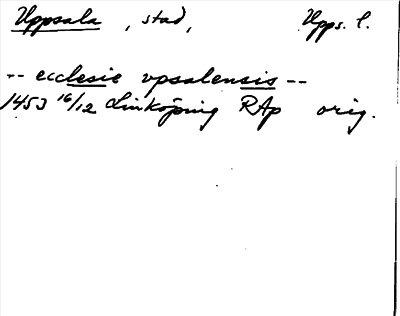 Uppsala, stad, Upps. l.
-- ecclesie vpsalensis --
1453 16/12 Linköping RAp orig.